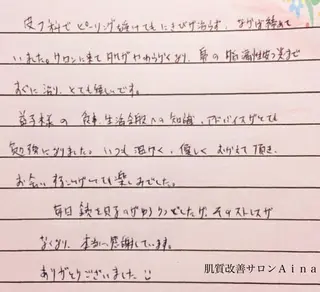 皮フ科でピーリング続けてもにきびが治らず、なかば諦めて
いました。サロンに来て肌がやわらかくなり、鼻の脂漏性皮フ炎まで
すぐに治り、とても嬉しいです。
益子様の食事、生活全般への知識、アドバイスがとても
勉強になりました。いつも温かく、優しくむかえて頂き、
お会いするだけでも楽しみでした。
毎日鏡を見るのがゆううつでしたが、そのストレスが
なくなり、本当に感謝しています。
ありがとうございました
肌質改善サロンAina